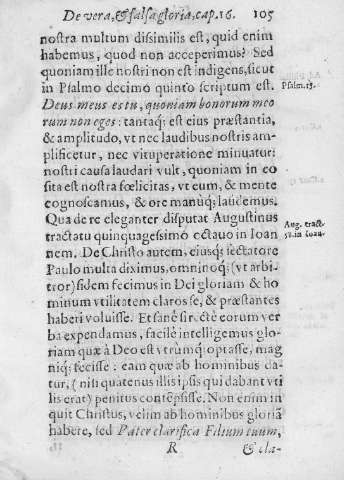 De vera, & falsa gloria, cap. 16. 105
nostra multum dissimilis est, quid enim
habemus, quod non acceperimus? Sed
quoniam ille nostri non est indigens, sicut
in Psalmo decimo quinto scriptum est.
Psalm. 15.
Deus meus es tu, quoniam bonorum meo
rum non eges: tantaq; est eius præstantia,
& amplitudo, vt nec laudibus nostris am-
plificetur, nec vituperatione minuatur:
nostri causa laudari vult, quoniam in eo
sita est nostra fœlicitas, vt eum, & mente
cognoscamus, & ore manuq; laudemus.
Qua de re eleganter disputat Augustinus
Aug. tract.
tractatu quinquagessimo octauo in Ioan
58. in Ioan.
nem. De Christo autem, eiusq; sectatore
Paulo multa diximus, omninoq; (vt arbi-
tror) fidem fecimus in Dei gloriam & ho
minum vtilitatem claros se, & præstantes
haberi voluisse. Et sanè si rectè eorum ver
ba expendamus, facilè intelligemus glo-
riam quæ à Deo est vtrũmq; optasse, mag
niq; fecisse: eam quæ ab hominibus da-
tur, (nisi quatenus illis ipsis qui dabant vti
lis erat) penitus contẽpsisse. Non enim in
quit Christus, velim ab hominibus gloriã
habere, sed Pater clarifica Filium tuum,
R & cla-